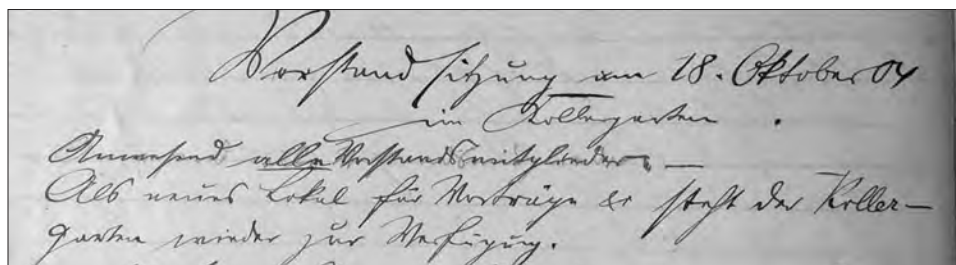 Vorstandsitzung am 18. Oktober 04
im Kollergarten.
Anwesend alle Vorstandsmitglieder. —
Als neues Lokal für Vorträge &c steht der Koller-
garten wieder zur Verfügung.